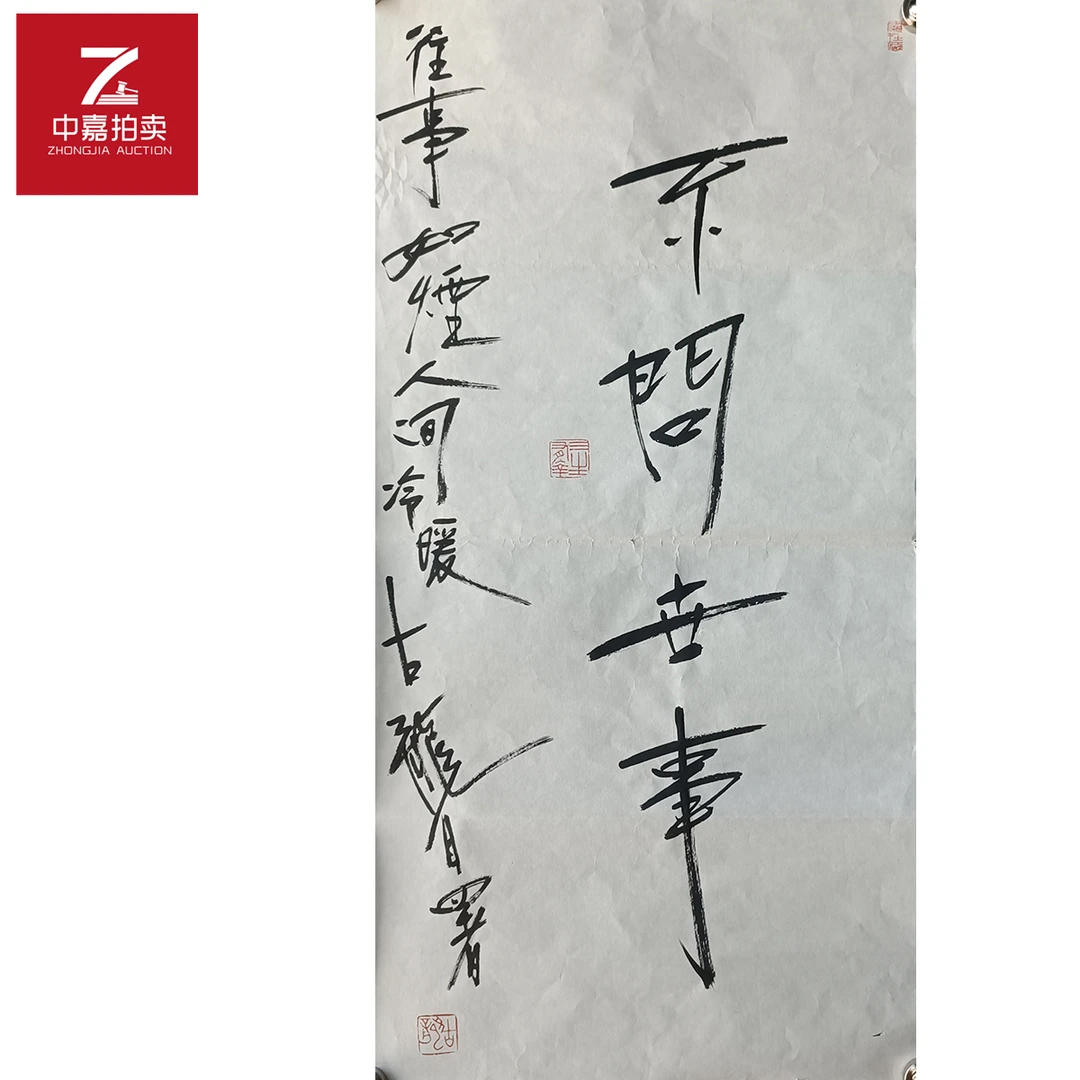 中嘉拍卖
ZHONGJIA AUCTION
不問世事
往事如煙人间冷暖古龍自署